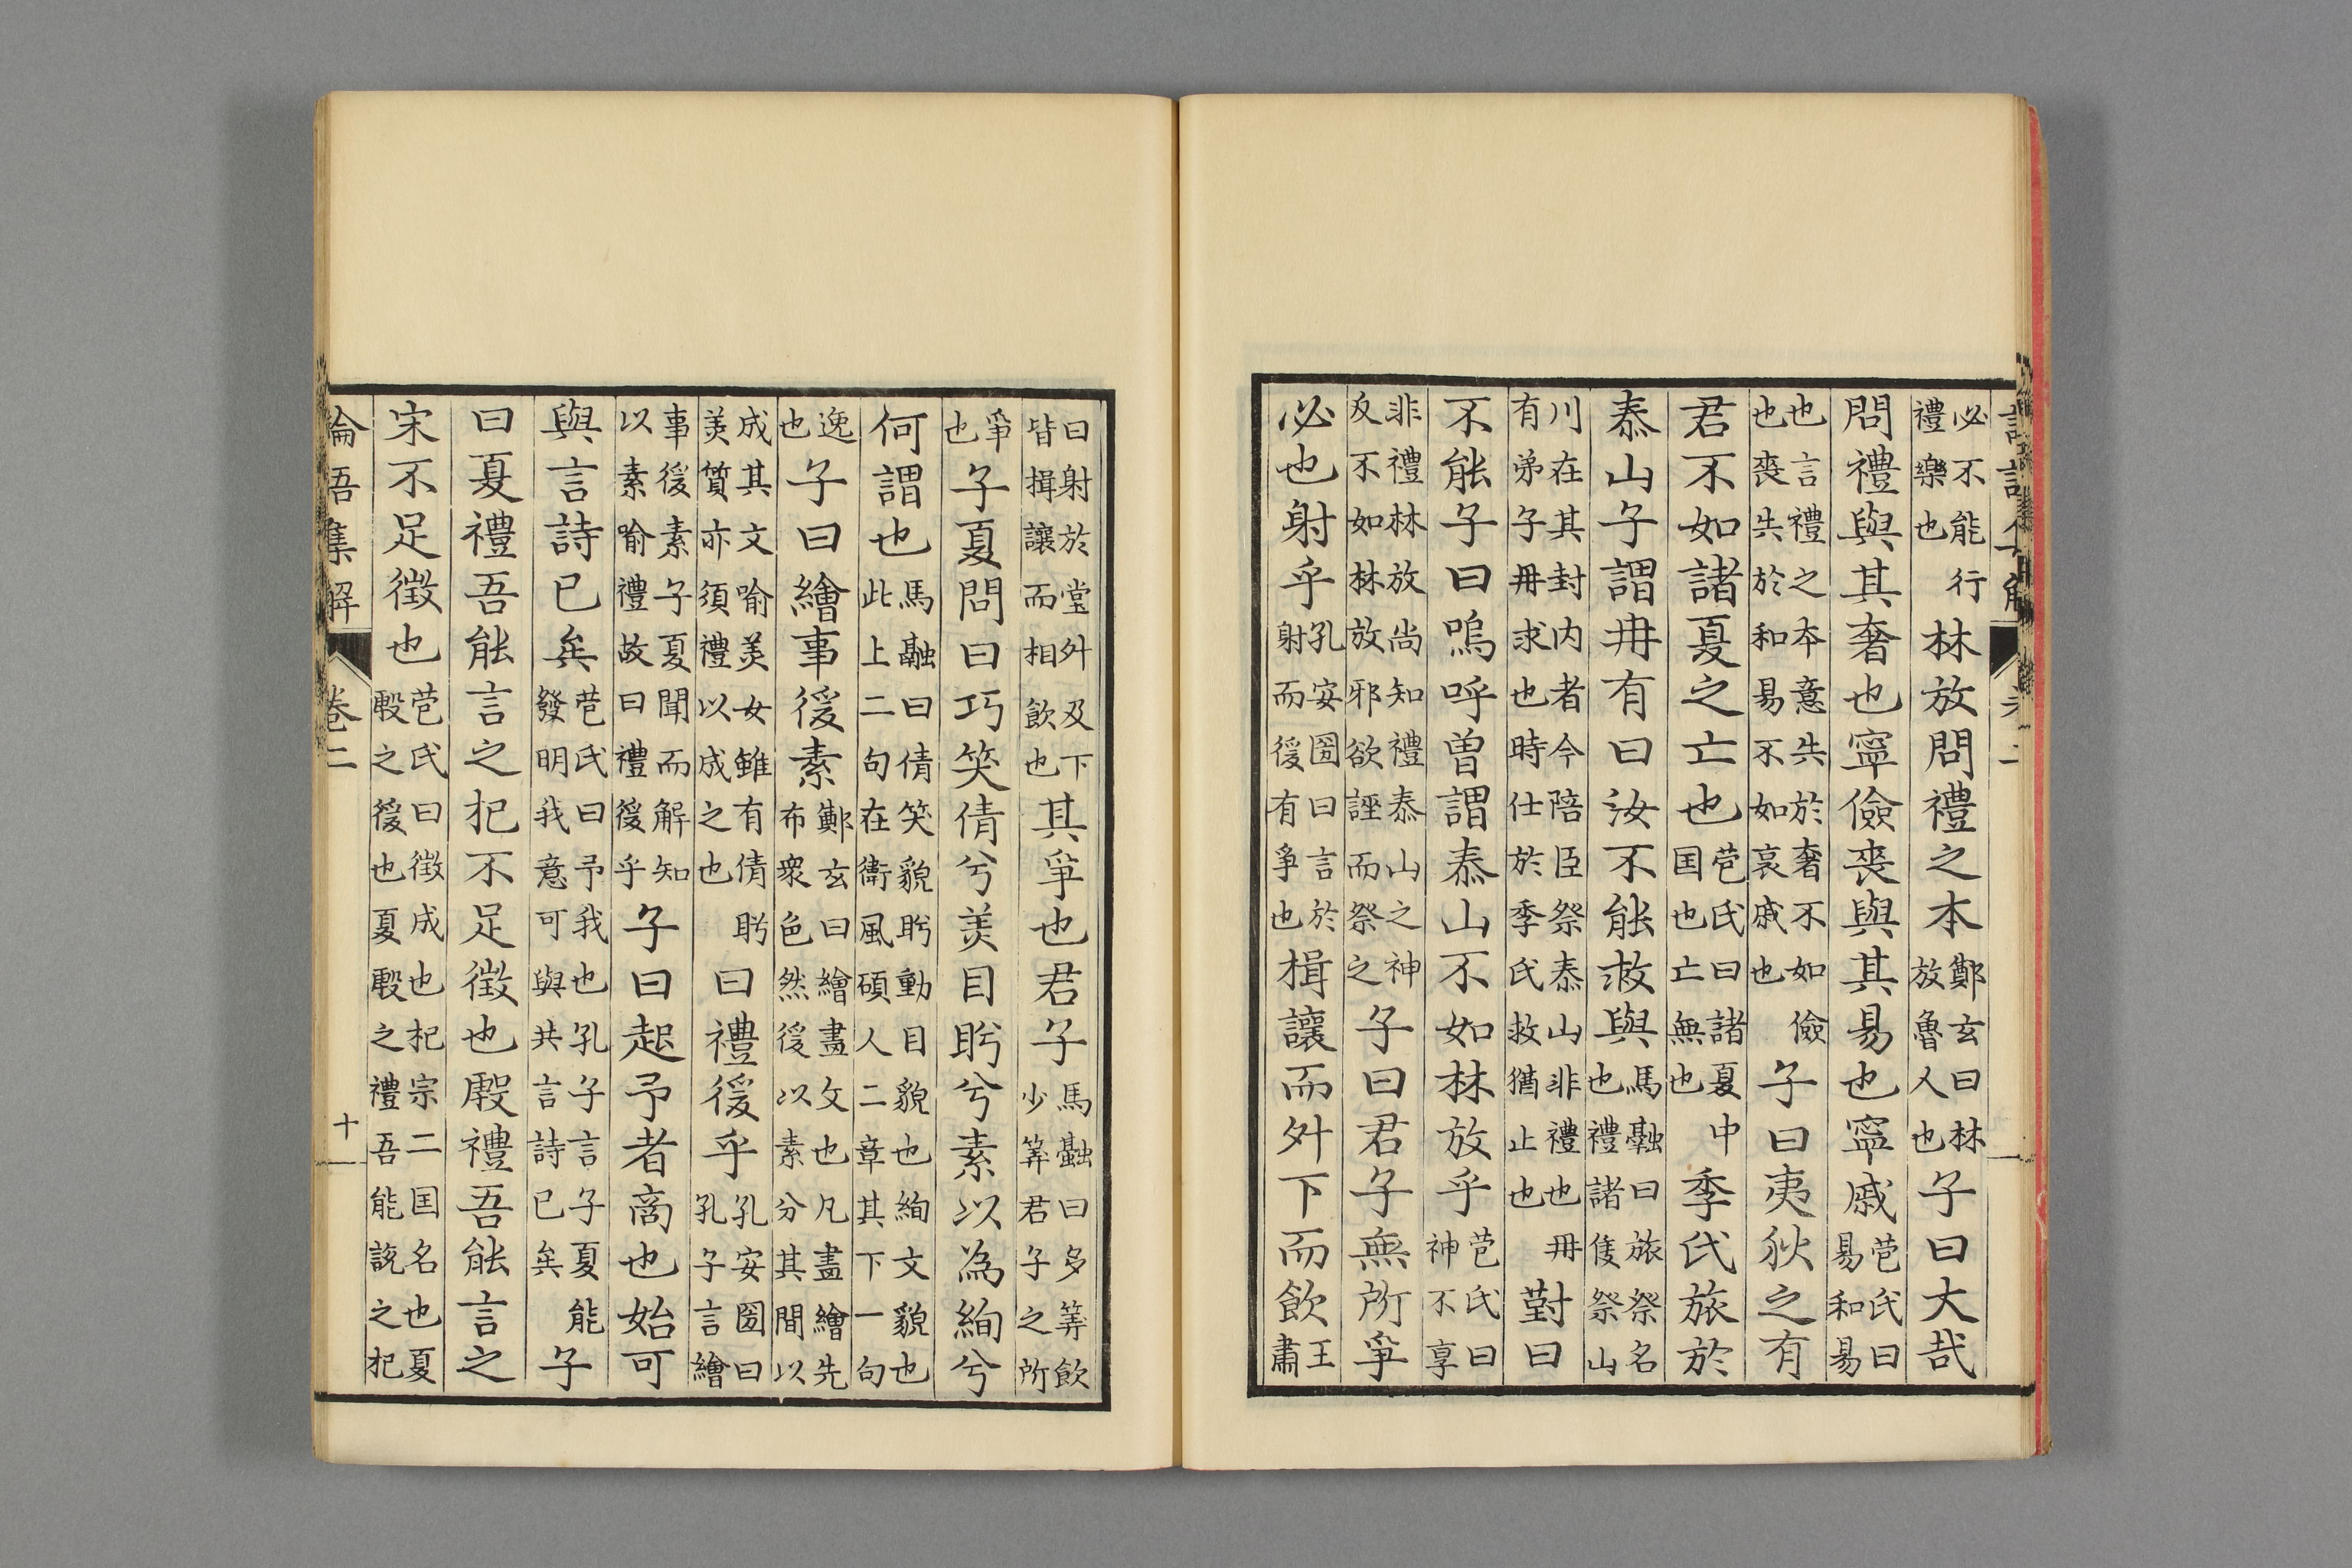 必不能行禮樂也林放問禮之本鄭玄曰林放魯人也子曰大哉
問禮與其奢也寧儉喪與其易也寧戚苞氏曰易和易
也言禮之本意失於奢不如儉也喪失於和易不如哀戚也子曰夷狄之有
君不如諸夏之亡也苞氏曰諸夏中囯也亡無也季氏旅於
泰山子謂冉有曰汝不能救與馬融曰旅祭名也禮諸侯祭山
川在其封内者今陪臣祭泰山非禮也冉有弟子冉求也時仕於季氏救猶止也對曰
不能子曰嗚呼曽謂泰山不如林放乎苞氏曰神不享
非禮林放尚知禮泰山之神反不如林放邪欲誣而祭之子曰君子無所爭
必也射乎孔安圀曰言於射而後有爭也揖讓而升下而飲王肅
曰射於堂升及下皆揖讓而相飲也其爭也君子馬融曰多筭飲少筭君子之所
爭也子夏問曰巧笑倩兮美目盻兮素以為絢兮
何謂也馬融曰倩笑貌盻動目貌也絢文貌也此上二句在衛風碩人二章其下一句
逸也子曰繪事後素鄭玄曰繪畫文也凡畫繪先布衆色然後以素分其間以
成其文喻美女雖有倩盻美質亦須禮以成之也曰禮後乎孔安圀曰孔子言繪
事後素子夏聞而解知以素喻禮故曰禮後乎子曰起予者商也始可
與言詩已矣苞氏曰予我也孔子言子夏能發明我意可與共言詩已矣子
曰夏禮吾能言之杞不足徵也殷禮吾能言之
宋不足徵也苞氏曰徵成也杞宗二囯名也夏殷之後也夏殷之禮吾能說之杞
論語集解 卷二 十